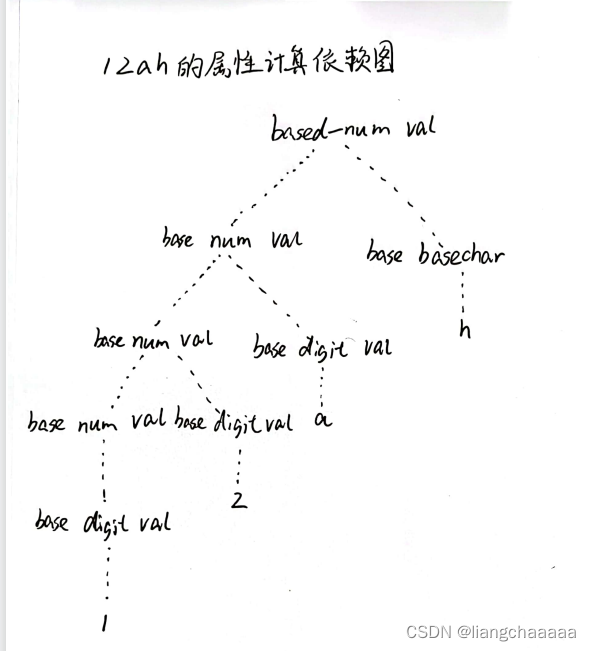 12ah的属性计算依赖图
based-num val
base num val
base basechar
base num val
base digit val
h
base num val
base digit val
a
base digit val
2
1
CSDN @liangchaaaaa